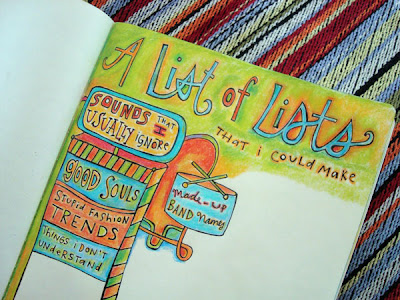 A List of Lists
THAT i COULD MAKE
SOUNDS THAT
I
USUALLY IGNORE
GOOD SOULS
STUPID FASHION
TRENDS
THINGS I DON'T
UNDERSTAND
made-up
BAND names